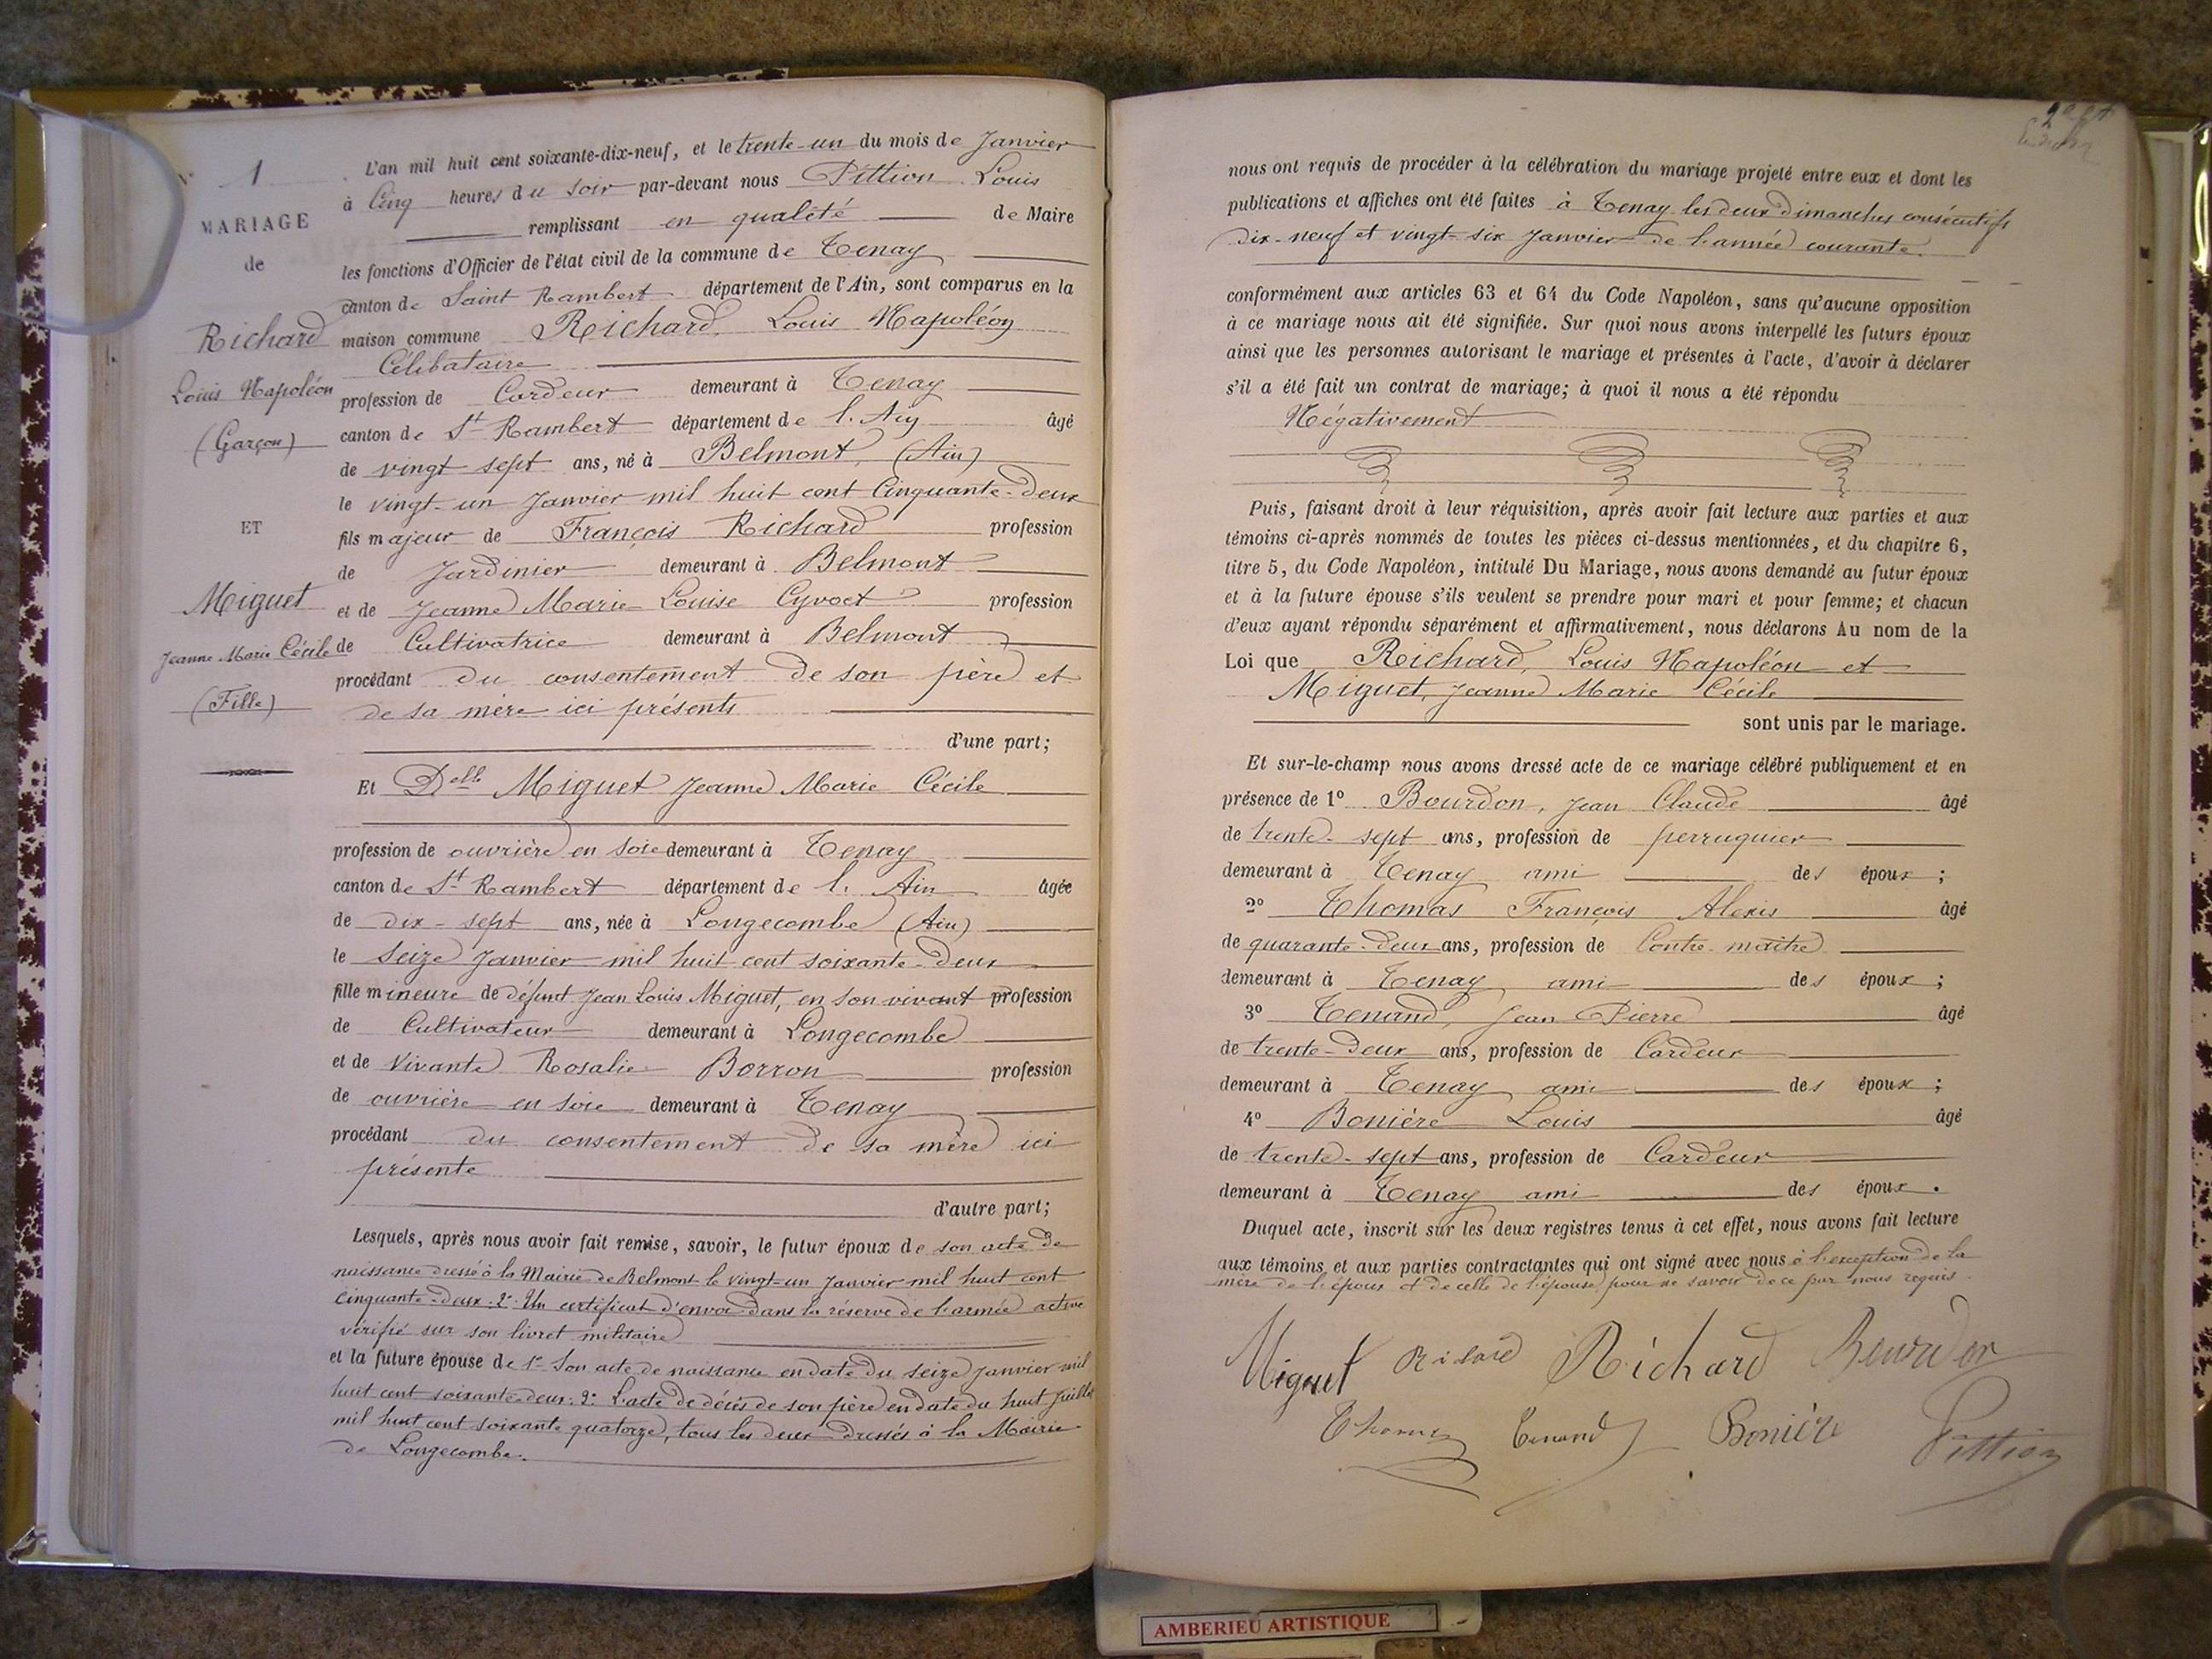 N° 1
MARIAGE
de
Richard
Louis Napoléon
(Garçon)
ET
Miguet
Jeanne Marie Cécile
(Fille)
L'an mil huit cent soixante-dix-neuf, et le trente-un du mois de Janvier
à Cinq heures du soir par-devant nous Pittion Louis
remplissant en qualité de Maire
les fonctions d'Officier de l'état civil de la commune de Tenay
canton de Saint Rambert département de l'Ain, sont comparus en la
maison commune Richard, Louis Napoléon
Célibataire
profession de Cardeur demeurant à Tenay
canton de St Rambert département de l'Ain âgé
de vingt sept ans, né à Belmont, (Ain)
le vingt-un Janvier mil huit cent Cinquante-deux
fils majeur de François Richard profession
de Jardinier demeurant à Belmont
et de Jeanne Marie Louise Cyvoct profession
de Cultivatrice demeurant à Belmont
procédant du consentement de son père et
de sa mère ici présents
d'une part;
Et Delle Miguet Jeanne Marie Cécile
profession de ouvrière en soie demeurant à Tenay
canton de St Rambert département de l'Ain âgée
de dix-sept ans, née à Longecombe (Ain)
le seize Janvier mil huit cent soixante-deux
fille mineure de défunt Jean Louis Miguet, en son vivant profession
de Cultivateur demeurant à Longecombe
et de vivante Rosalie Borron profession
de ouvrière en soie demeurant à Tenay
procédant du consentement de sa mère ici
présente
d'autre part;
Lesquels, après nous avoir fait remise, savoir, le futur époux de son acte de
naissance dressé à la Mairie de Belmont le vingt-un Janvier mil huit cent
cinquante-deux: 2° Un certificat d'envoi dans la réserve de l'armée active
vérifié sur son livret militaire
et la future épouse de 1° Son acte de naissance en date du seize Janvier mil
huit cent soixante deux: 2° L'acte de décès de son père en date du huit Juillet
mil huit cent soixante quatorze, tous les deux dressés à la Mairie
de Longecombe.
nous ont requis de procéder à la célébration du mariage projeté entre eux et dont les
publications et affiches ont été faites à Tenay les deux dimanches consécutifs
dix-neuf et vingt-six Janvier de l'année courante.
conformément aux articles 63 et 64 du Code Napoléon, sans qu'aucune opposition
à ce mariage nous ait été signifiée. Sur quoi nous avons interpellé les futurs époux
ainsi que les personnes autorisant le mariage et présentes à l'acte, d'avoir à déclarer
s'il a été fait un contrat de mariage; à quoi il nous a été répondu
Négativement
Puis, faisant droit à leur réquisition, après avoir fait lecture aux parties et aux
témoins ci-après nommés de toutes les pièces ci-dessus mentionnées, et du chapitre 6,
titre 5, du Code Napoléon, intitulé Du Mariage, nous avons demandé au futur époux
et à la future épouse s'ils veulent se prendre pour mari et pour femme; et chacun
d'eux ayant répondu séparément et affirmativement, nous déclarons Au nom de la
Loi que Richard, Louis Napoléon et
Miguet, Jeanne Marie Cécile
sont unis par le mariage.
Et sur-le-champ nous avons dressé acte de ce mariage célébré publiquement et en
présence de 1° Bourdon, Jean Claude âgé
de trente-sept ans, profession de perruquier
demeurant à Tenay ami des époux;
2° Thomas François Alexis âgé
de quarante-deux ans, profession de Contre-maître
demeurant à Tenay ami des époux;
3° Tenand, Jean Pierre âgé
de trente-deux ans, profession de Cardeur
demeurant à Tenay ami des époux;
4° Bonière Louis âgé
de trente-sept ans, profession de Cardeur
demeurant à Tenay ami des époux.
Duquel acte, inscrit sur les deux registres tenus à cet effet, nous avons fait lecture
aux témoins et aux parties contractantes qui ont signé avec nous à l'exception de la
mère de l'époux et de celle de l'épouse pour ne savoir de ce par nous requis.
Miguet Richard Richard Bourdon
Thomas Tenand Bonière Pittion
AMBERIEU ARTISTIQUE